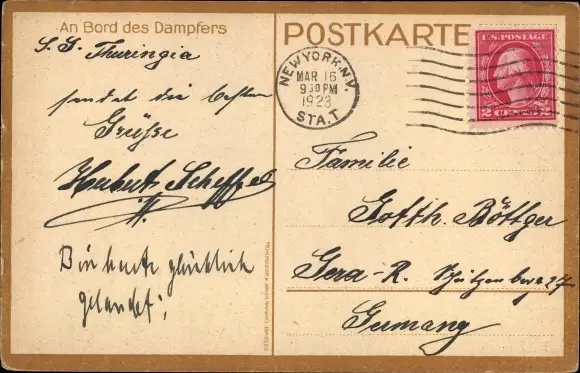 An Bord des Dampfers
S. S. Thuringia
sendet die besten
Grüsse
Herbert Scheffel
Bin heute glücklich
gelandet!
POSTKARTE
NEW YORK, N.Y.
MAR 16
9 30 PM
1923
STA. T
U.S. POSTAGE
2 CENTS 2
Familie
Gotth. Böttger
Gera-R. Schützenberg 27
Germany